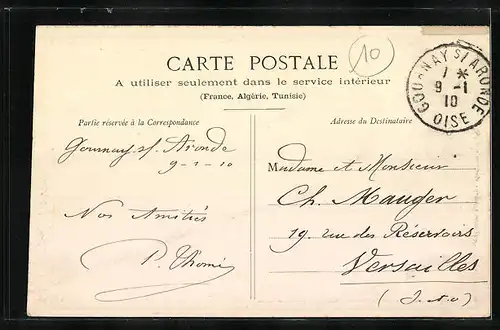 CARTE POSTALE
A utiliser seulement dans le service intérieur
(France, Algérie, Tunisie)
10
GOURNAY S/ ARONDE
7 *
9 -1
10
OISE
Partie réservée à la Correspondance
Gournay s/ Aronde
9-1-10
Nos Amitiés
P. Thomé
Adresse du Destinataire
Madame et Monsieur
Ch. Mauger
19 rue des Réservoirs
Versailles
(S-&-O)